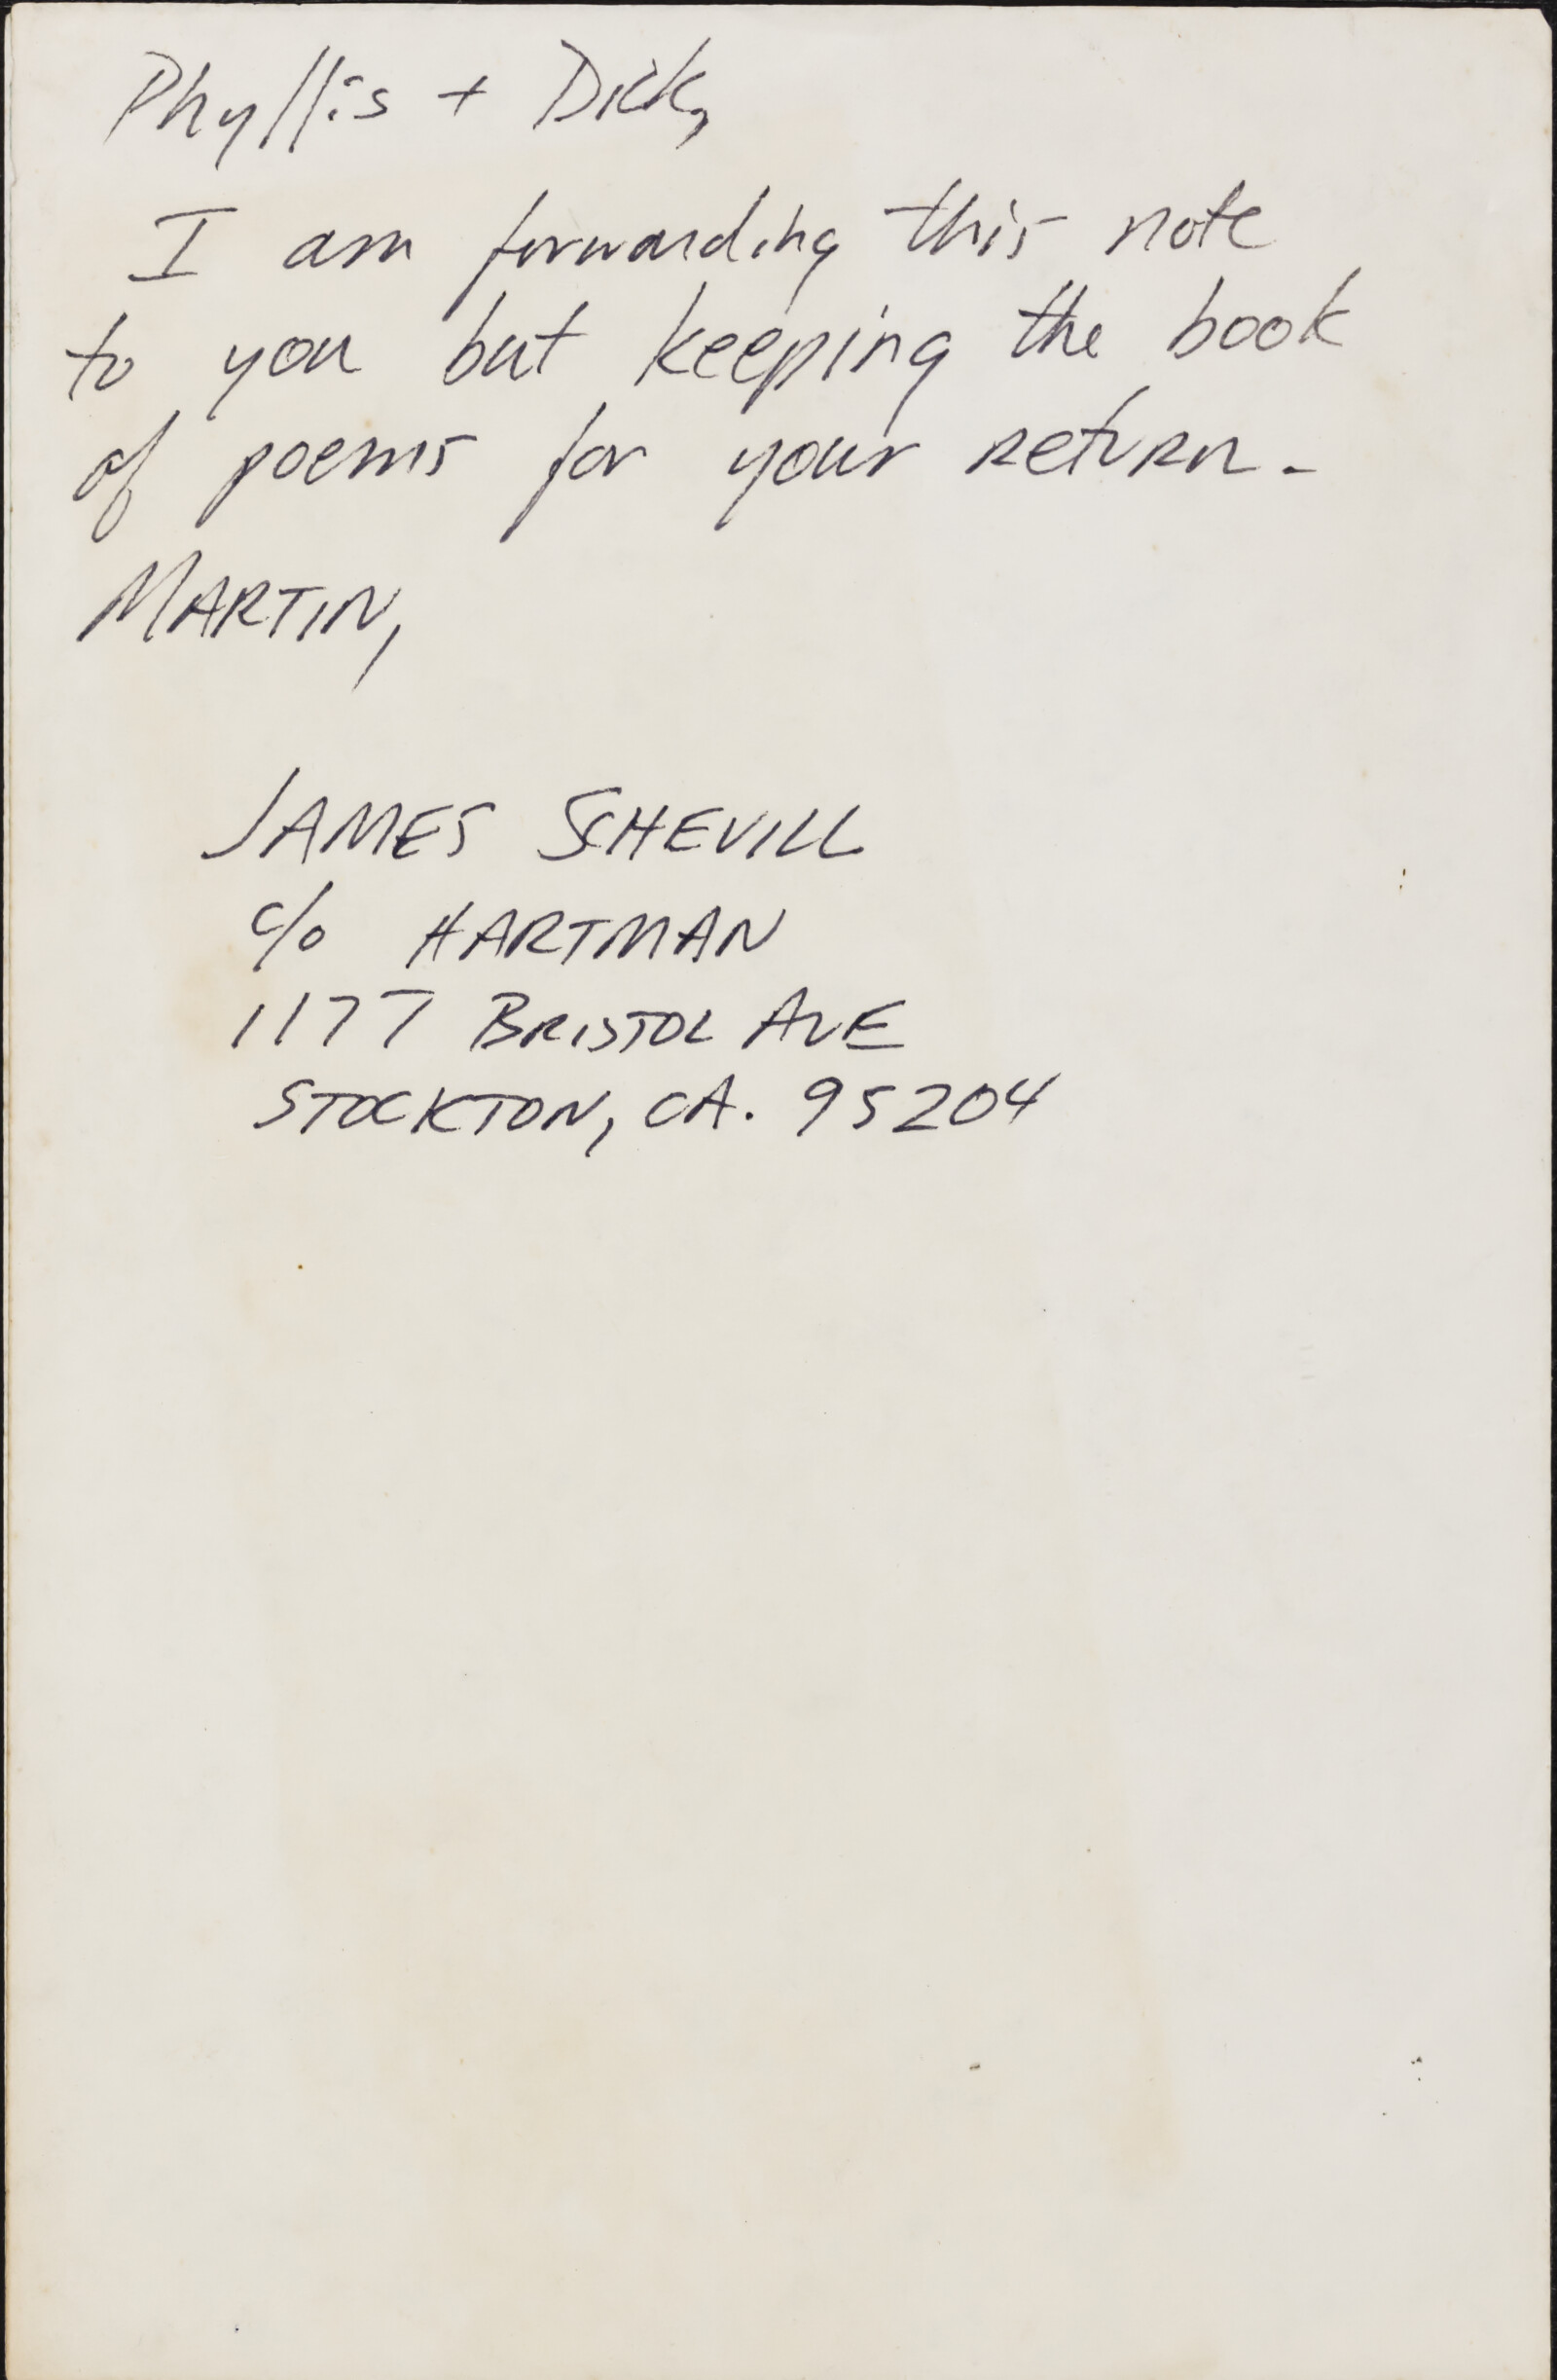 Phyllis + Dick,
I am forwarding this note
to you but keeping the book
of poems for your return -
MARTIN,
JAMES SCHEVILL
c/o HARTMAN
1177 BRISTOL AVE
STOCKTON, CA. 95204